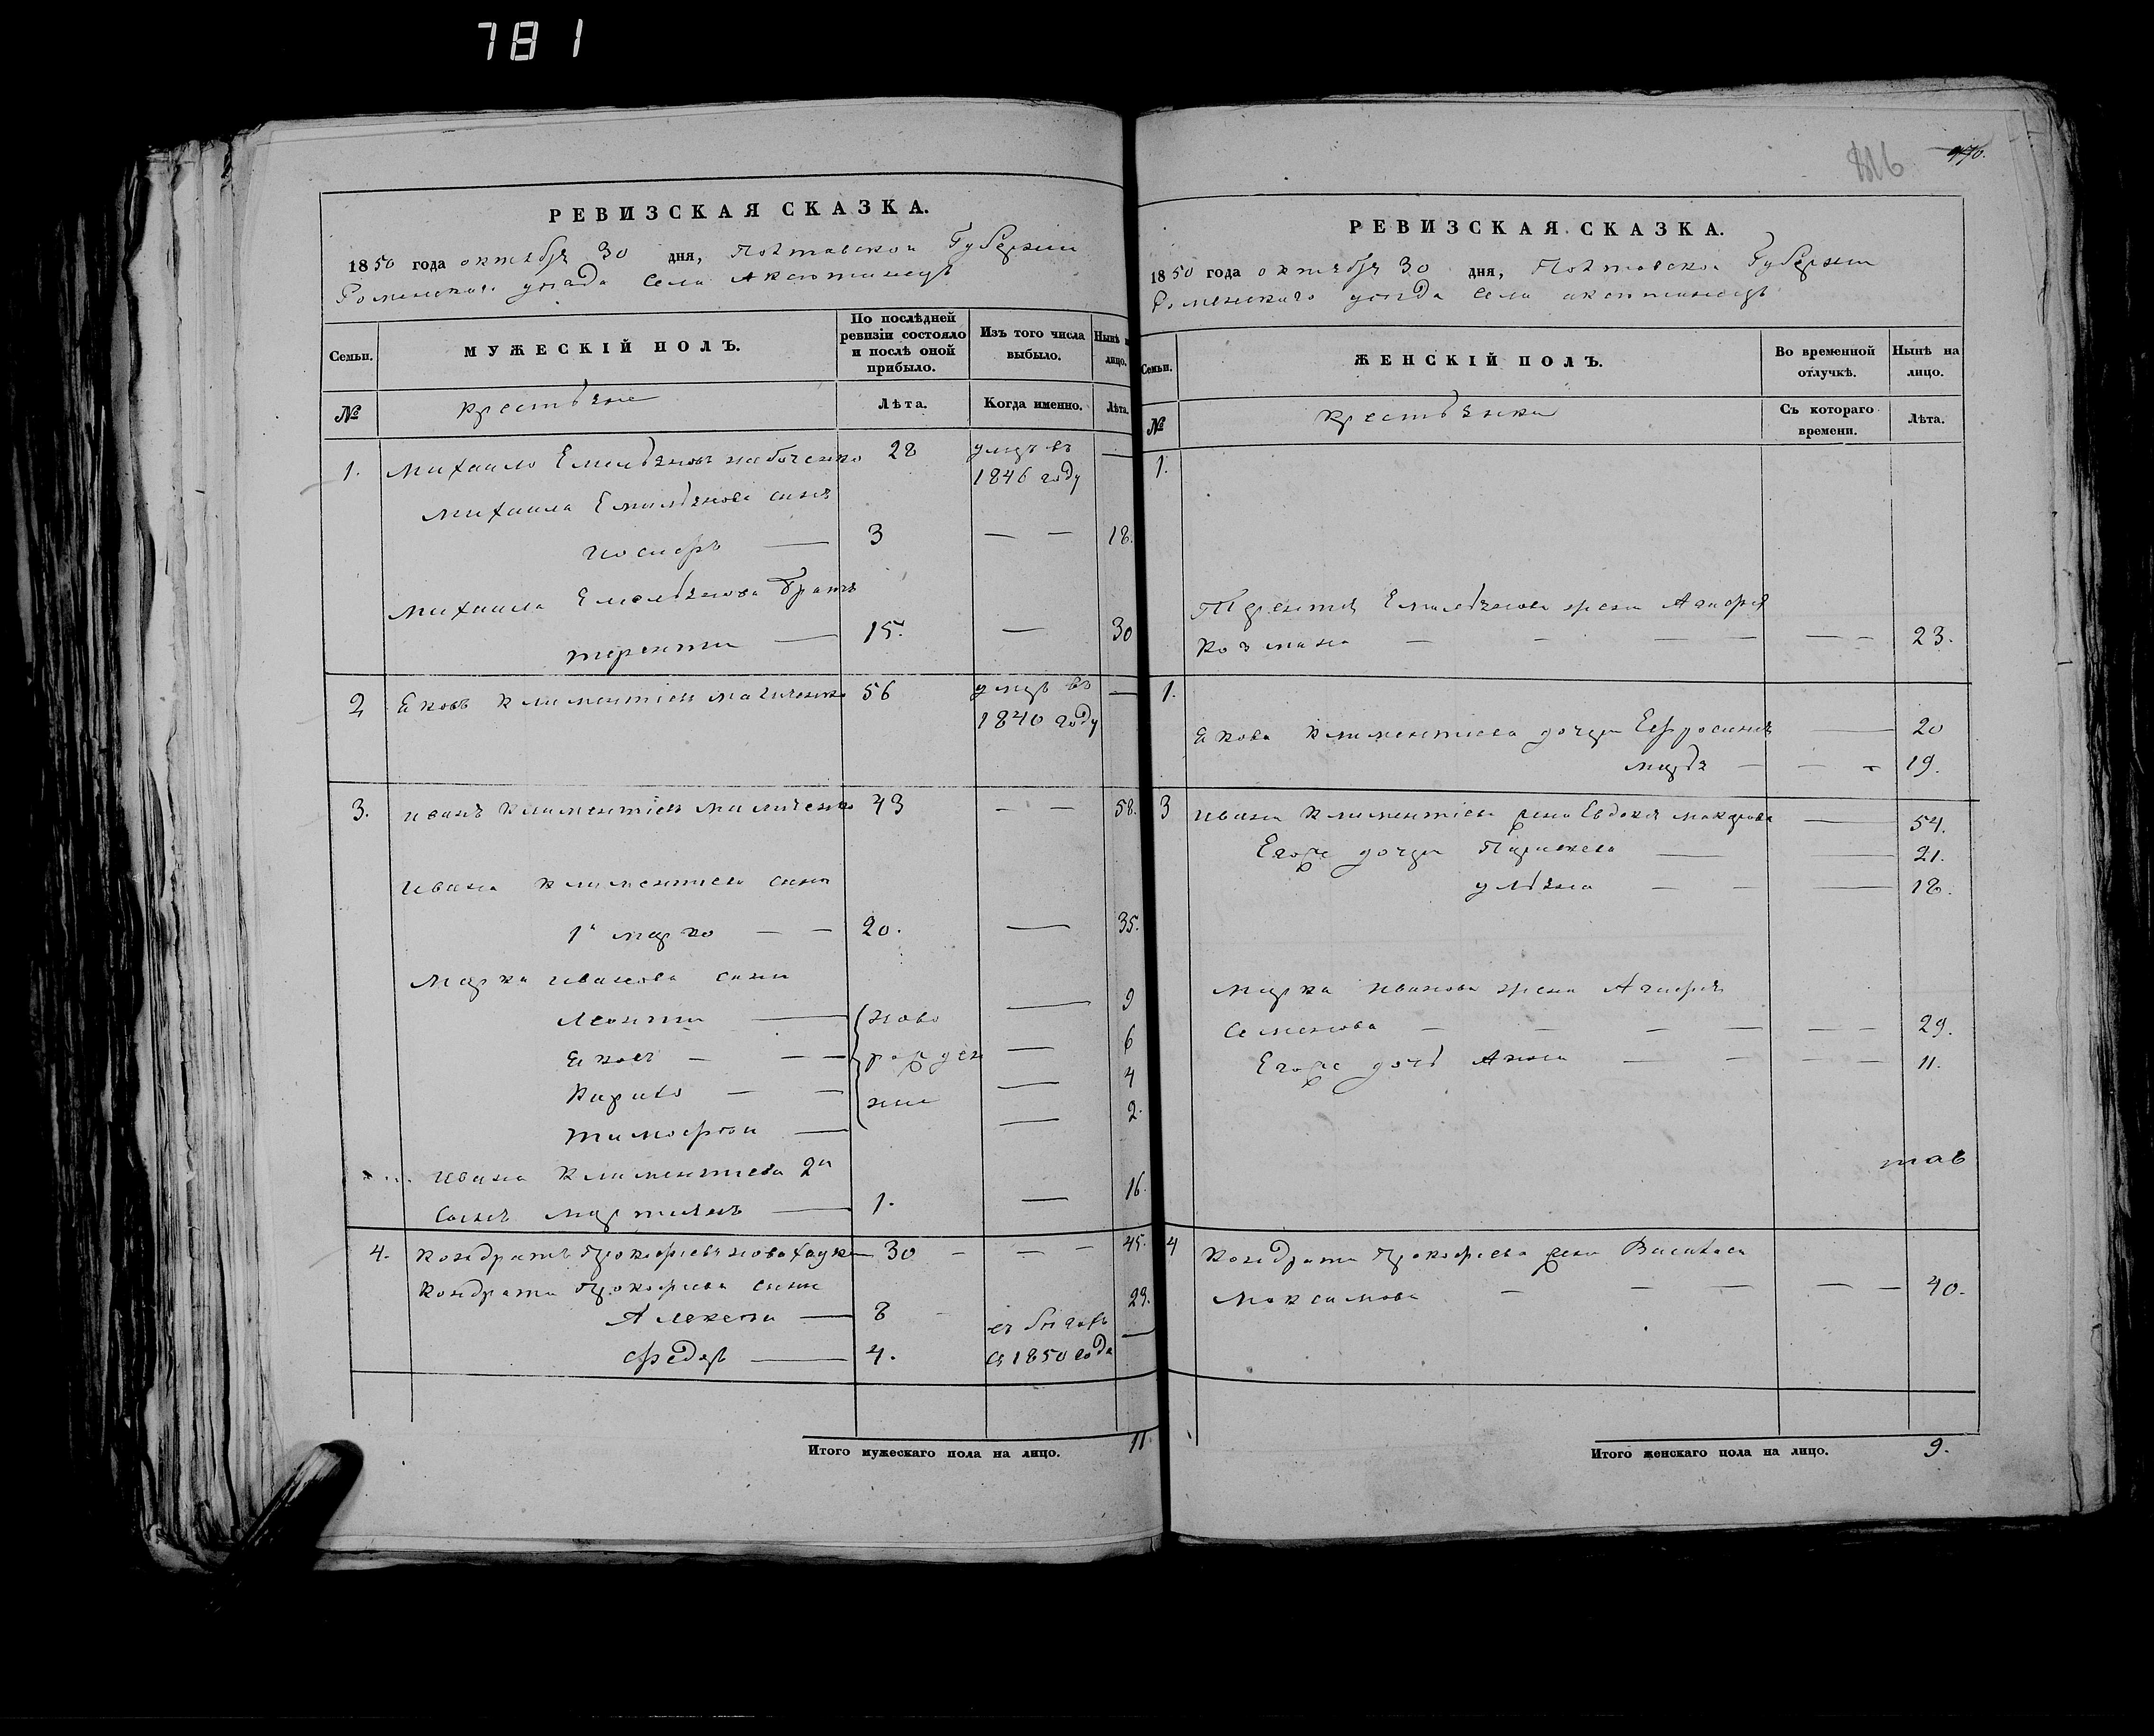 781
РЕВИЗСКАЯ СКАЗКА.
1850 года октября 30 дня, Полтавской Губернии
Роменскаго уезда Села Аксютинець
Семьи.
МУЖЕСКІЙ ПОЛЪ.
По послѣдней ревизіи состояло и послѣ оной прибыло.
Изъ того числа выбыло.
Нынѣ
лицо.
№
Крестьяне
Лѣта.
Когда именно.
Лѣта.
1. Михаило Емельяновъ 28 умръ въ —
1846 году
Михаила Емельянова синъ
Иосифъ — 3 — — 18.
Михаила Емельянова братъ
Терентий — 15. — 30
2 Яковъ Климентіевъ 56 умръ въ —
1840 году
3. Иванъ Климентіевъ 43 — — 58.
Ивана Климентиева сини
1й Марко — — 20. — 35.
Марка Иванова сини
Леонтий — ново — 9
Яковъ — — рожден — 6
Кирило — — ние — 4
Тимофей — — 2.
Ивана Климентиева 2й
Синъ Мартинъ — 1. — 16.
4. Кондратъ Прокофиевъ 30 — — — 45.
Кондрата Прокофиева сини
Алексей — 8 — 23.
Федоръ — 4. въ бегахъ
съ 1850 года —
Итого мужескаго пола на лицо. 11.
816 470.
РЕВИЗСКАЯ СКАЗКА.
1850 года октября 30 дня, Полтавской Губернии
Роменскаго уезда Села аксютинець
Семьи.
ЖЕНСКІЙ ПОЛЪ.
Во временной отлучкѣ.
Нынѣ на лицо.
№
Крестьянки
Съ котораго времени.
Лѣта.
1.
Терентия Емельянова жена Агафия
Козмина — — — — — — 23.
1.
Якова Климентиева дочери Ефросиния — 20
Марья — — - 19.
3 Ивана Климентиева жена Евдокия Макарова — 54.
Егоже дочери Параскева — — 21.
Ульяна — — — 18.
Марка Иванова жена Агафия
Семенова — — — — — — 29.
Егоже дочь Анна — — — — 11.
4 Кондрата Прокофиева жена Василиса
Максимова — — — — — 40.
Итого женскаго пола на лицо. 9.